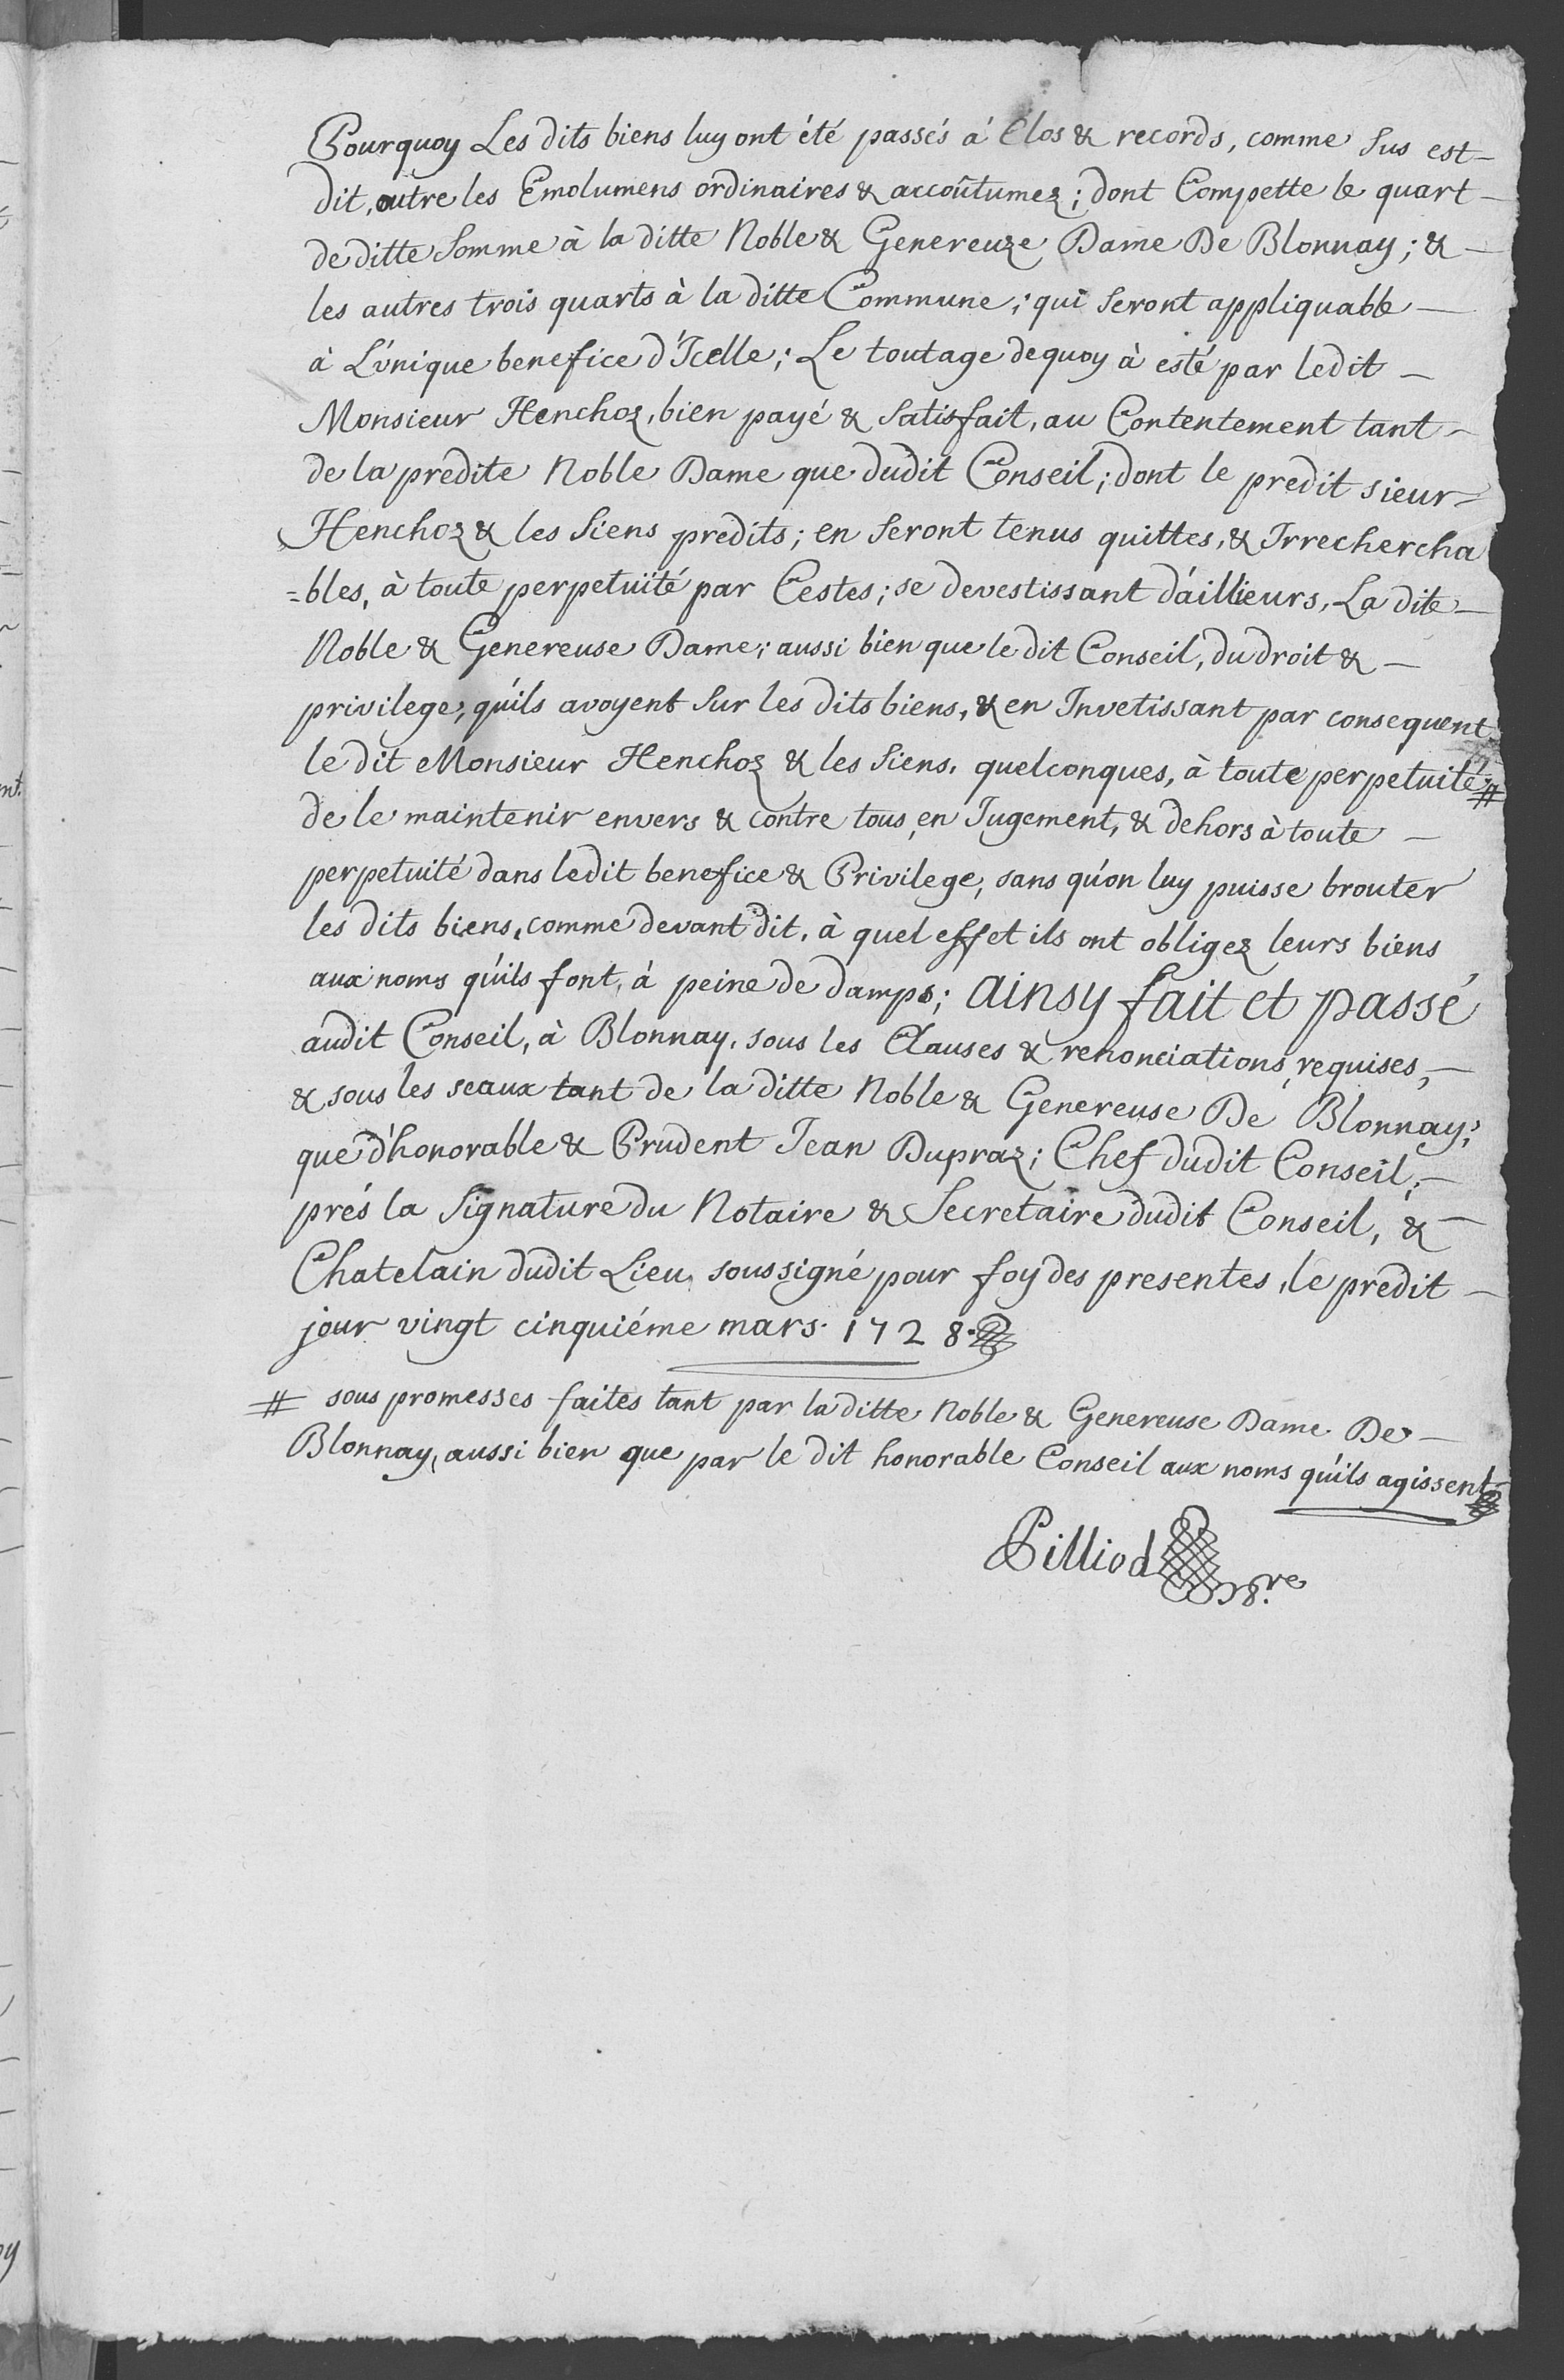 Pourquoy Les dits biens luy ont été passés á Clos & records, comme sus est-
dit, outre les Emolumens ordinaires & accoûtumez; dont Compette le quart-
de ditte somme à la ditte Noble & Genereuze Dame De Blonnay; & -
les autres trois quarts à la ditte Commune; qui seront appliquable -
à L'únique benefice d'Icelle; Le toutage dequoy à esté par ledit -
Monsieur Henchoz, bien payé & satisfait, au Contentement tant -
de la predite Noble Dame que dudit Conseil; dont le predit sieur
Henchoz & les siens predits; en seront tenus quittes, & Irrechercha
=bles, à toute perpetuité par Cestes; se devestissant d'aillieurs, La dite -
Noble & Genereuse Dame; aussi bien que le dit Conseil, du droit & -
privilege, qu'ils avoyent sur les dits biens, & en Invetissant par consequent
le dit Monsieur Henchoz & les siens, quelconques, à toute perpetuité #
de le maintenir envers & contre tous, en Jugement, & dehors à toute -
perpetuité dans ledit benefice & Privilege, sans qu'on luy puisse brouter
les dits biens, comme devant dit, à quel effet ils ont obligez leurs biens
aux noms qu'ils font, à peine de damps; ainsy fait et passé
audit Conseil, à Blonnay, sous les Clauses & renonciations requises, -
& sous les seaux tant de la ditte Noble & Genereuse De Blonnay,
que d'honorable & Prudent Jean Dupraz; Chef dudit Conseil, -
prés la signature du Notaire & Secretaire dudit Conseil, & -
Chatelain dudit Lieu, soussigné pour foy des presentes, le predit -
jour vingt cinquiéme mars 1728.
# sous promesses faites tant par la ditte Noble & Genereuse Dame De -
Blonnay, aussi bien que par le dit honorable Conseil aux noms qu'ils agissent
Pilliod